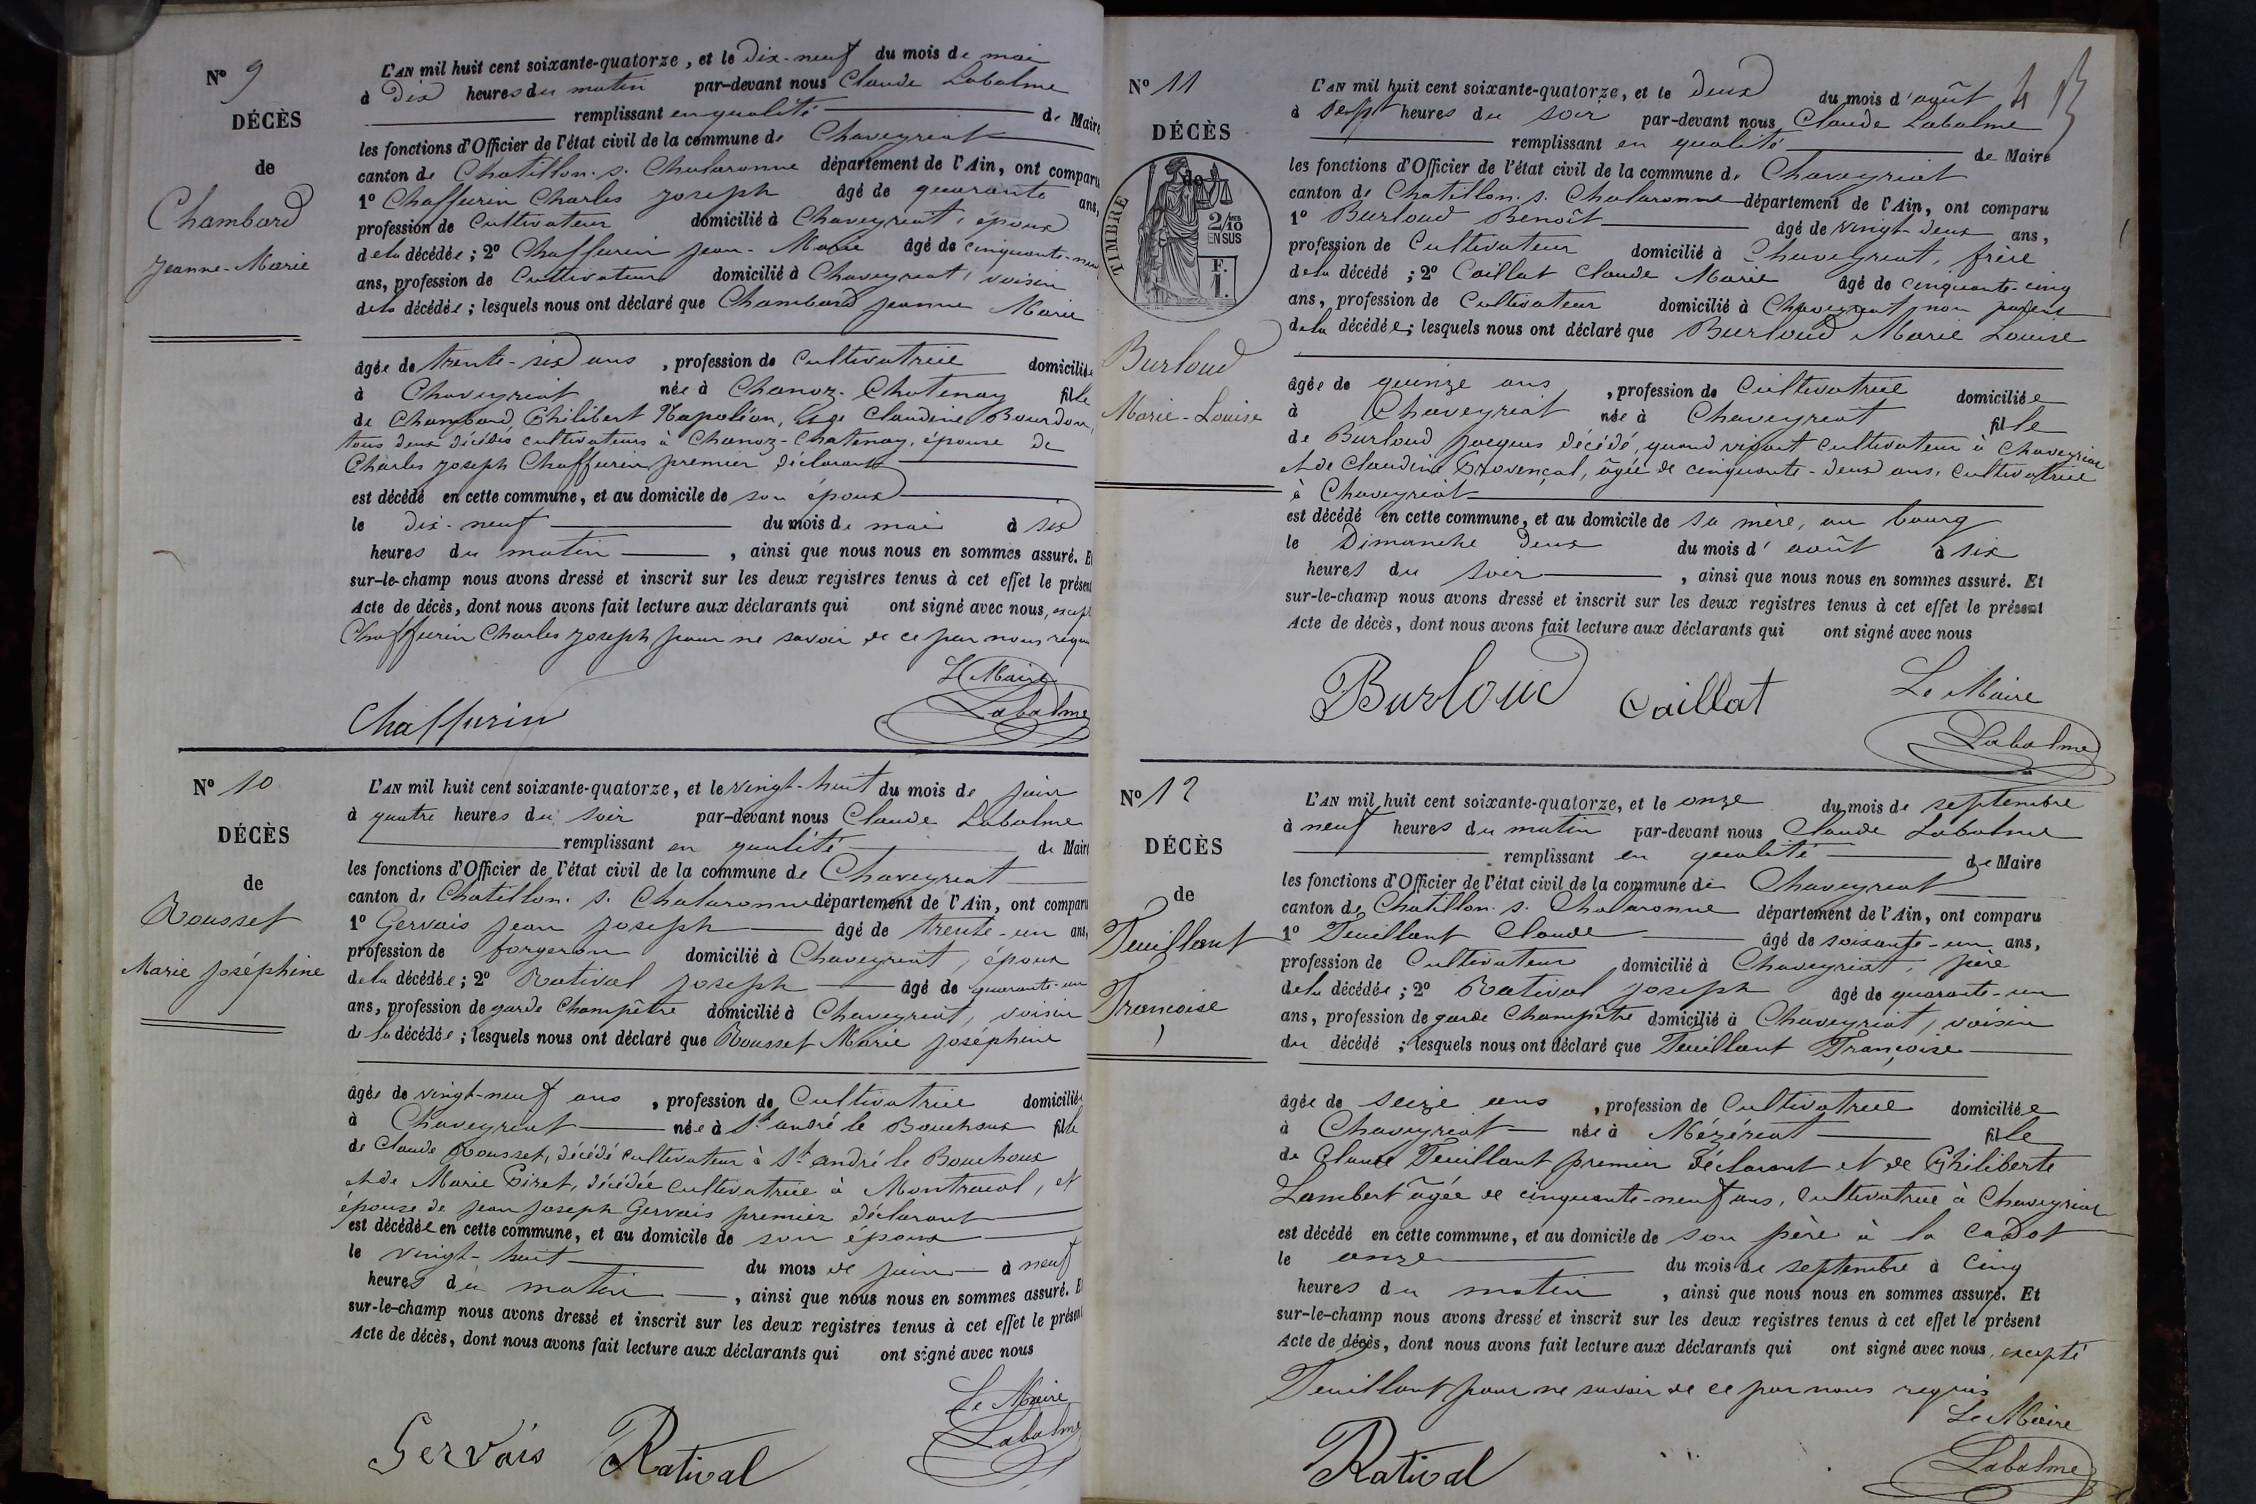 Nº 9
DÉCÈS
de
Chambard
Jeanne-Marie
L'AN mil huit cent soixante-quatorze, et le dix-neuf du mois de mai
à dix heures du matin par-devant nous Claude Labalme
remplissant en qualité de Maire
les fonctions d'Officier de l'état civil de la commune de Chaveyriat
canton de Chatillon. s. Chalaronne département de l'Ain, ont comparu
1º Chaffurin Charles Joseph âgé de quarante ans,
profession de Cultivateur domicilié à Chaveyriat, époux
de la décédée ; 2º Chaffurin Jean-Marie âgé de cinquante-neuf
ans, profession de Cultivateur domicilié à Chaveyriat, voisin
de la décédée ; lesquels nous ont déclaré que Chambard Jeanne Marie
âgée de trente-six ans, profession de Cultivatrice domiciliée
à Chaveyriat née à Chanoz-Chatenay fille
de Chambard Philibert Napoléon, et de Claudine Bourdon,
tous deux décédés cultivateurs à Chanoz-Chatenay, épouse de
Charles Joseph Chaffurin premier déclarant
est décédé en cette commune, et au domicile de son époux
le dix-neuf du mois de mai à six
heures du matin, ainsi que nous nous en sommes assuré. Et
sur-le-champ nous avons dressé et inscrit sur les deux registres tenus à cet effet le présent
Acte de décès, dont nous avons fait lecture aux déclarants qui ont signé avec nous, except
Chaffurin Charles Joseph pour ne savoir de ce par nous requis
Le Maire
Chaffurin Labalme
Nº 10
DÉCÈS
de
Rousset
Marie Joséphine
L'AN mil huit cent soixante-quatorze, et le vingt-huit du mois de juin
à quatre heures du soir par-devant nous Claude Labalme
remplissant en qualité de Maire
les fonctions d'Officier de l'état civil de la commune de Chaveyriat
canton de Chatillon. s. Chalaronne département de l'Ain, ont comparu
1º Gervais Jean Joseph âgé de trente-un ans,
profession de forgeron domicilié à Chaveyriat, époux
de la décédée ; 2º Ratival Joseph âgé de quarante-un
ans, profession de garde Champêtre domicilié à Chaveyriat, voisin
de la décédée ; lesquels nous ont déclaré que Rousset Marie Joséphine
âgée de vingt-neuf ans, profession de Cultivatrice domiciliée
à Chaveyriat née à St. andré le Bouchoux fille
de Claude Rousset, décédé cultivateur à St andré le Bouchoux
et de Marie Piret, décédée cultivatrice à Montracol, et
épouse de Jean Joseph Gervais premier déclarant
est décédée en cette commune, et au domicile de son époux
le vingt-huit du mois de juin à neuf
heures du matin, ainsi que nous nous en sommes assuré. Et
sur-le-champ nous avons dressé et inscrit sur les deux registres tenus à cet effet le présent
Acte de décès, dont nous avons fait lecture aux déclarants qui ont signé avec nous
Le Maire
Gervais Ratival Labalme
Nº 11
DÉCÈS
de
TIMBRE
2/10
EN SUS
F.
1.
Burloud
Marie-Louise
L'AN mil huit cent soixante-quatorze, et le deux du mois d'août
à sept heures du soir par-devant nous Claude Labalme
remplissant en qualité de Maire
les fonctions d'Officier de l'état civil de la commune de Chaveyriat
canton de Chatillon. s. Chalaronne département de l'Ain, ont comparu
1º Burloud Benoît âgé de vingt-deux ans,
profession de Cultivateur domicilié à Chaveyriat, frère
de la décédé ; 2º Caillat Claude Marie âgé de cinquante-cinq
ans, profession de Cultivateur domicilié à Chaveyriat non parent
de la décédée ; lesquels nous ont déclaré que Burloud Marie Louise
âgée de quinze ans, profession de Cultivatrice domiciliée
à Chaveyriat née à Chaveyriat fille
de Burloud Jacques décédé, quand vivait cultivateur à Chaveyriat
et de Claudine Provençal, âgée de cinquante-deux ans, Cultivatrice
à Chaveyriat
est décédé en cette commune, et au domicile de sa mère, au bourg
le Dimanche deux du mois d'août à six
heures du soir, ainsi que nous nous en sommes assuré. Et
sur-le-champ nous avons dressé et inscrit sur les deux registres tenus à cet effet le présent
Acte de décès, dont nous avons fait lecture aux déclarants qui ont signé avec nous
Burloud Caillat Le Maire
Labalme
Nº 12
DÉCÈS
de
Teuillant
Francoise
L'AN mil huit cent soixante-quatorze, et le onze du mois de septembre
à neuf heures du matin par-devant nous Claude Labalme
remplissant en qualité de Maire
les fonctions d'Officier de l'état civil de la commune de Chaveyriat
canton de Chatillon. s. Chalaronne département de l'Ain, ont comparu
1º Teuillant Claude âgé de soixante-un ans,
profession de Cultivateur domicilié à Chaveyriat, père
de la décédée ; 2º Ratival Joseph âgé de quarante-un
ans, profession de garde Champêtre domicilié à Chaveyriat, voisin
du décédé ; lesquels nous ont déclaré que Teuillant Françoise
âgée de seize ans, profession de Cultivatrice domiciliée
à Chaveyriat née à Mézériat fille
de Claude Teuillant premier déclarant et de Philiberte
Lambert âgée de cinquante-neuf ans, Cultivatrice à Chaveyriat
est décédé en cette commune, et au domicile de son père à la Cadot
le onze du mois de septembre à cinq
heures du matin, ainsi que nous nous en sommes assuré. Et
sur-le-champ nous avons dressé et inscrit sur les deux registres tenus à cet effet le présent
Acte de décès, dont nous avons fait lecture aux déclarants qui ont signé avec nous, excepté
Teuillant pour ne savoir de ce par nous requis
Le Maire
Ratival Labalme